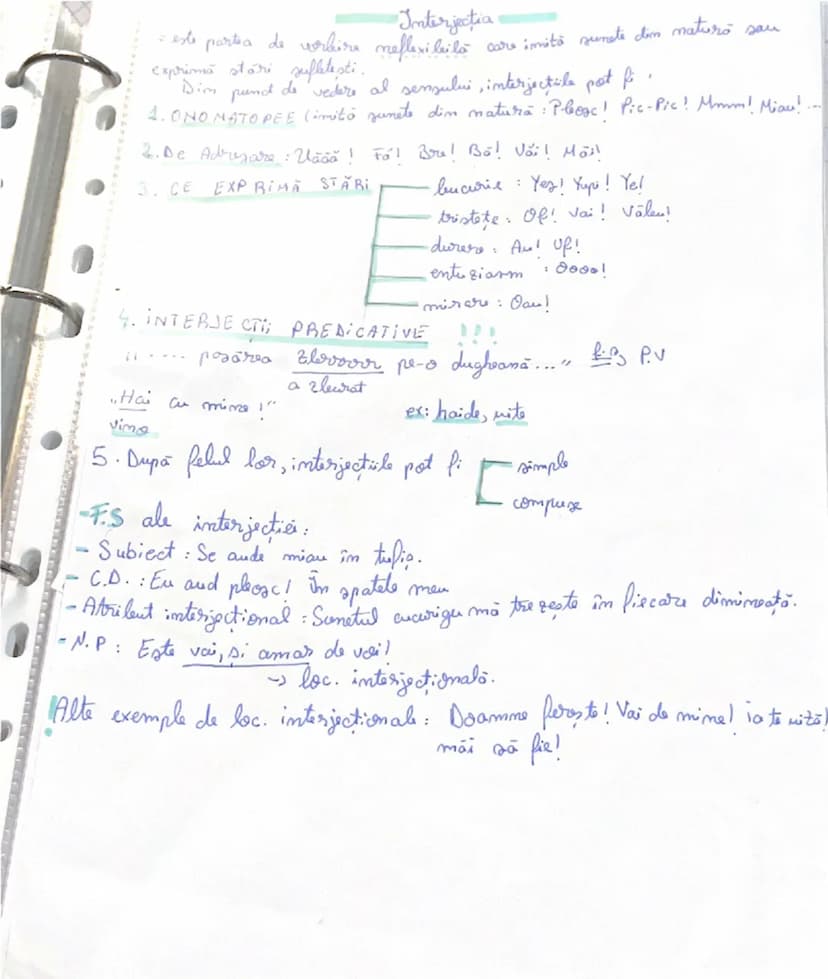 Interjecția
= este partea de vorbire neflexibilă care imită sunete din natură sau
exprimă stări sufletești.
Din punct de vedere al sensului, interjecțiile pot fi:
1. ONOMATOPEE (imită sunete din natură: Pleosc! Pic-Pic! Mmm! Miau!...
2. De Adresare: Uăăă! Fă! Bre! Bă! Văi! Măi!
3. CE EXPRIMĂ STĂRI
bucurie: Yes! Yupi! Ye!
tristețe: Of! Vai! Văleu!
durere: Au! Uf!
entuziasm: Oooo!
mirare: Oau!
4. INTERJECȚII PREDICATIVE !!!
,,.... pasărea zbrrrr pe-o dugheană..." f.s P.V
a zburat
„Hai cu mine!" ex: haide, uite
vino
5. După felul lor, interjecțiile pot fi
simple
compuse
-F.S ale interjecției:
- Subiect: Se aude miau în tufiș.
- C.D.: Eu aud pleosc! În spatele meu
- Atribut interjecțional: Sunetul cucurigu mă trezește în fiecare dimineață.
- N.P: Este vai, și amar de voi!
→ loc. interjecțională.
!Alte exemple de loc. interjecționale: Doamne ferește! Vai de mine! ia te uită!
măi să fie!